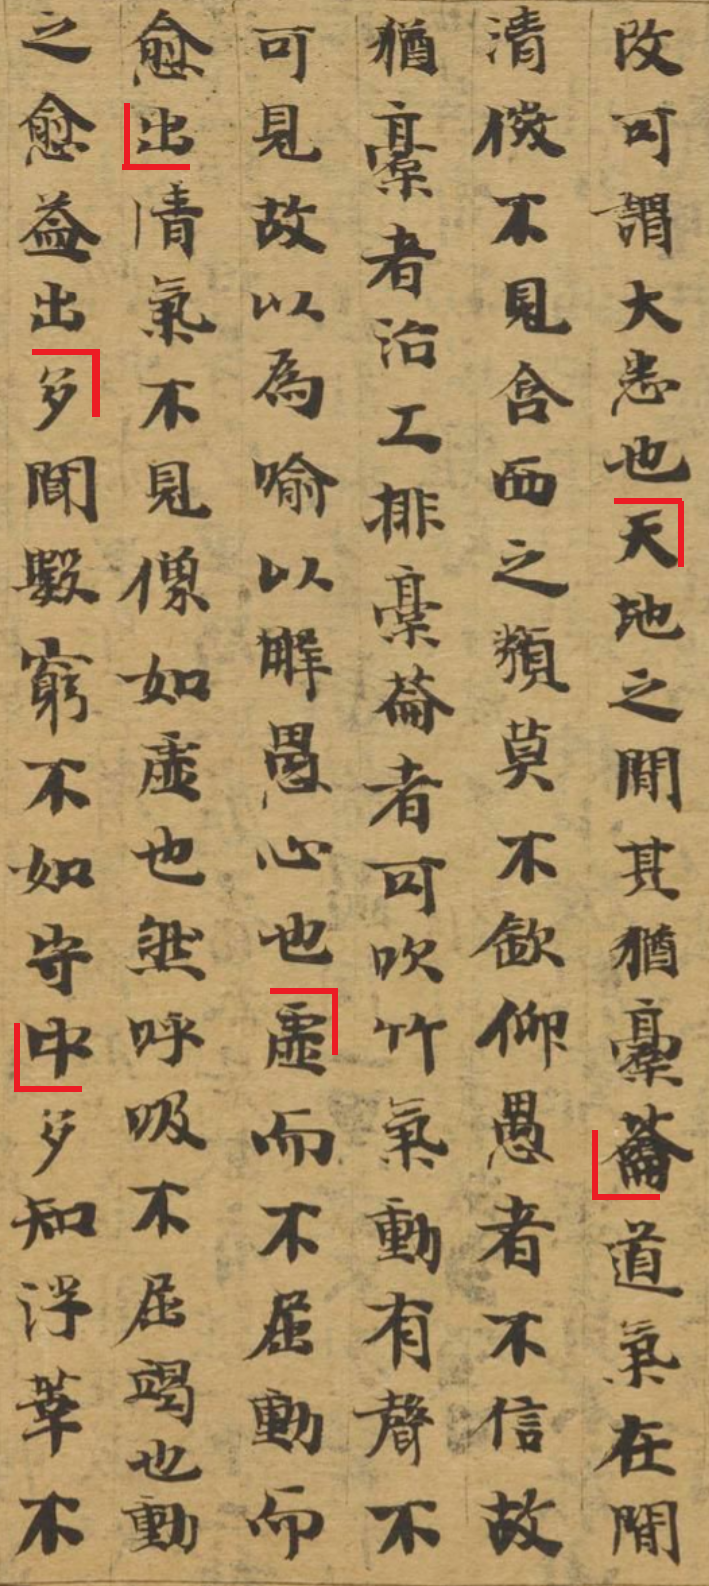 改可謂大恚也天地之間其猶橐蘥道氣在間
清微不見含血之類莫不欽仰愚者不信故
猶橐者治工排橐蘥者可吹竹氣動有聲不
可見故以為喻以解愚心也虛而不屈動而
愈出清氣不見像如虛也然呼吸不屈竭也動
之愈益出多聞數窮不如守中多知浮華不